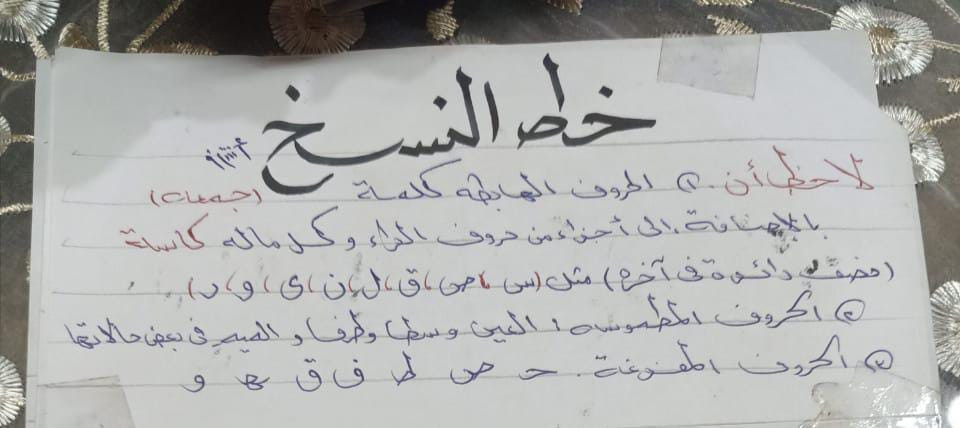 خط النسخ
لاحظ أن ١ الحروف الهابطة كلمة (جميعه)
بالإضافة إلى أجزاء من حروف الراء وكل ماله كاسة
(نصف دائرة في آخره) مثل (س، ص، ق، ل، ن، ى، و، ر)
٢ الحروف المطموسة: العين وسطا وطرفا و الميم في بعض حالاتها
٣ الحروف المفرغة. ص ط ف ق و